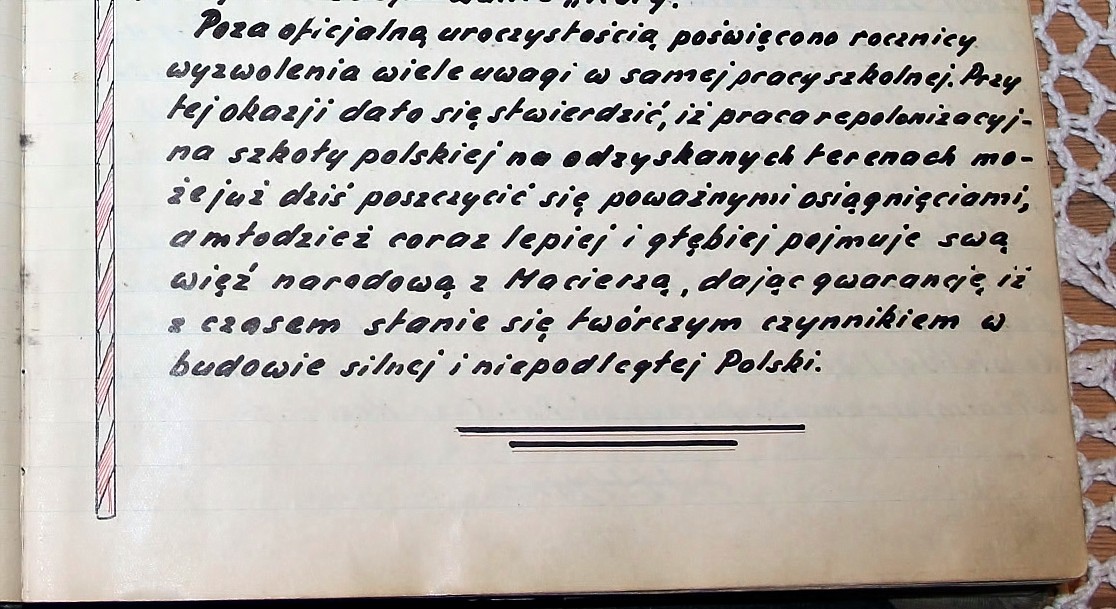 Poza oficjalną uroczystością poświęcono rocznicy
wyzwolenia wiele uwagi w samej pracy szkolnej. Przy
tej okazji dało się stwierdzić, iż praca repolonizacyj-
na szkoły polskiej na odzyskanych terenach mo-
że już dziś poszczycić się poważnymi osiągnięciami,
a młodzież coraz lepiej i głębiej pojmuje swą
więź narodową z Macierzą, dając gwarancję, iż
z czasem stanie się twórczym czynnikiem w
budowie silnej i niepodległej Polski.